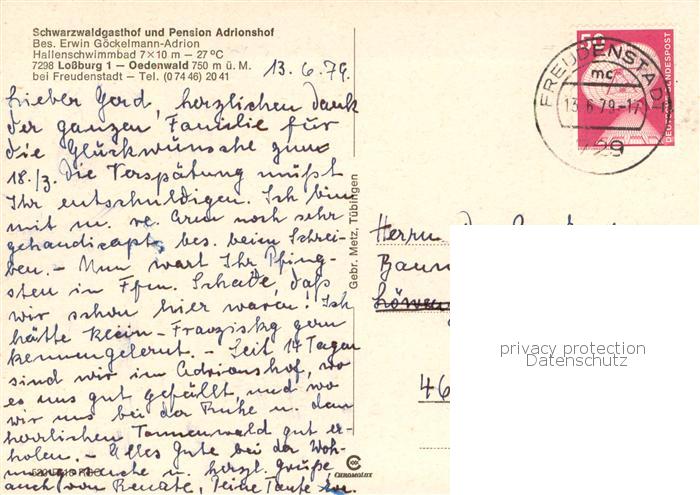 Schwarzwaldgasthof und Pension Adrionshof
Bes. Erwin Göckelmann-Adrion
Hallenschwimmbad 7×10 m – 27°C
7298 Loßburg 1 – Oedenwald 750 m ü. M.
bei Freudenstadt – Tel. (0 74 46) 20 41
13.6.79.
Lieber Gerd, herzlichen Dank
der ganzen Familie für
die Glückwünsche zum
18./3. Die Verspätung müßt
Ihr entschuldigen. Ich bin
mit m. re. Arm noch sehr
gehandicapt, bes. beim Schrei-
ben. – Nun wart Ihr Pfing-
sten in Ffm. Schade, daß
wir schon hier waren! Ich
hätte Klein-Franziska gern
kennengelernt. – Seit 14 Tagen
sind wir im Adrionshof, wo
es uns gut gefällt, und wo
wir uns bei der Ruhe u. dem
herrlichen Tannenwald gut er-
holen. – Alles Gute bei der Woh-
nungssuche u. herzl. Grüße
auch von Renate, Deine Tante
Gebr. Metz, Tübingen
CHROMOLUX
50
DEUTSCHE BUNDESPOST
FREUDENSTADT
mc
13.6.79-17
729
Herrn
Löwen
46
privacy protection
Datenschutz